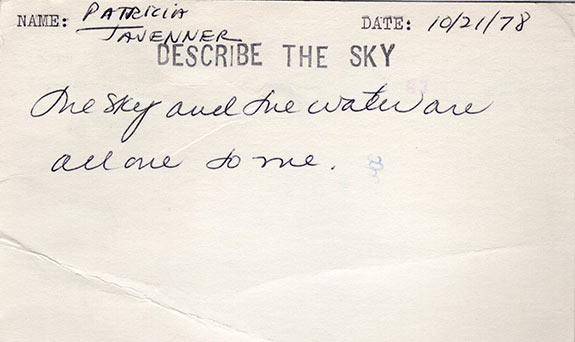 NAME: PATRICIA
TAVENNER
DATE: 10/21/78
DESCRIBE THE SKY
The sky and the water are
all one to me.